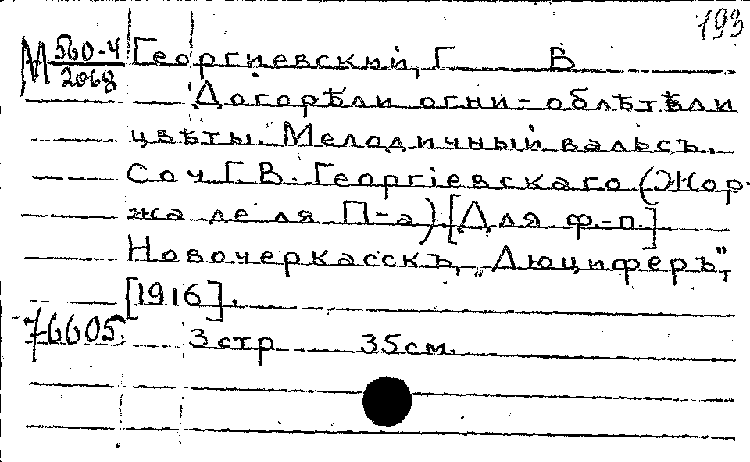 193
М 560-4/2068 Георгиевский, Г В
Догорѣли огни - облѣтѣли
цвѣты. Мелодичный вальсъ.
Соч Г В. Георгіевскаго (Жор-
жа де ля П-а) [Для ф.-п.]
Новочеркасскъ, „Люциферъ",
[1916].
76605. 3 стр 35 см.